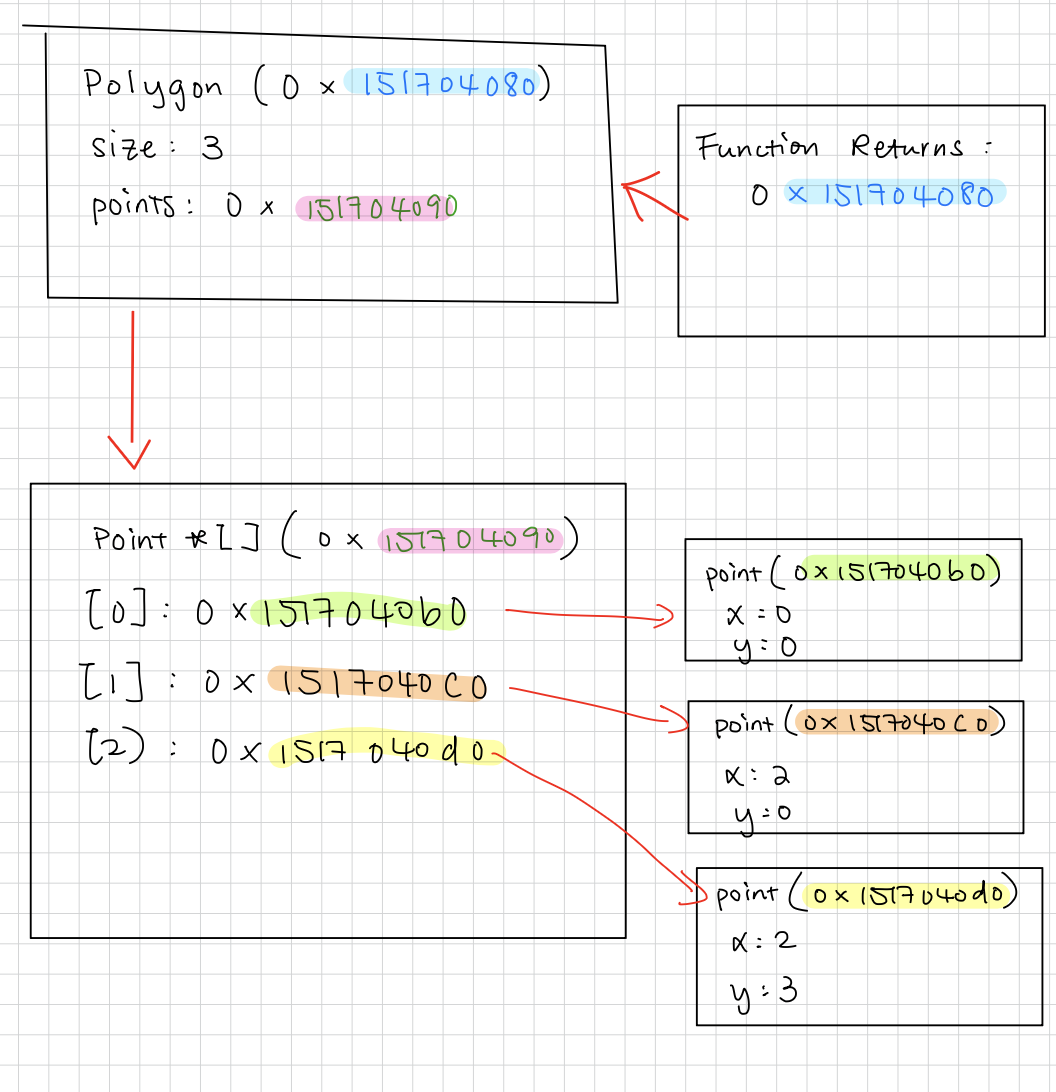 Polygon (0 x 151704080)
size: 3
points: 0 x 151704090
Function Returns:
0 x 151704080
Point *[] (0 x 151704090)
[0]: 0 x 1517040b0
[1]: 0 x 1517040C0
[2): 0 x 1517040d0
point (0x1517040b0)
x = 0
y: 0
point (0x1517040C0)
x: 2
y: 0
point (0x1517040d0)
x: 2
y: 3